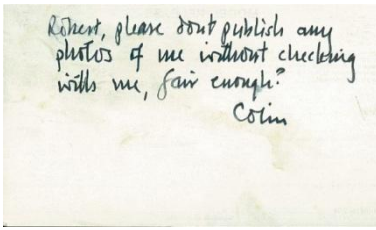 Robert, please dont publish any
photos of me without checking
with me, fair enough?
Colin